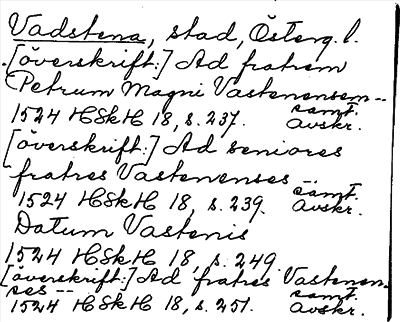 Vadstena, stad, Österg. l.
[överskrift:] Ad fratrem
Petrum Magni Vastenensem --
1524 HSkH 18, s. 237. samt. avskr.
[överskrift:] Ad seniores
fratres Vastenenses --
1524 HSkH 18, s. 239. samt. avskr.
Datum Vastenis
1524 HSkH 18, s. 249
[överskrift:] Ad fratres Vastenen-
ses --
1524 HSkH 18, s. 251. samt. avskr.